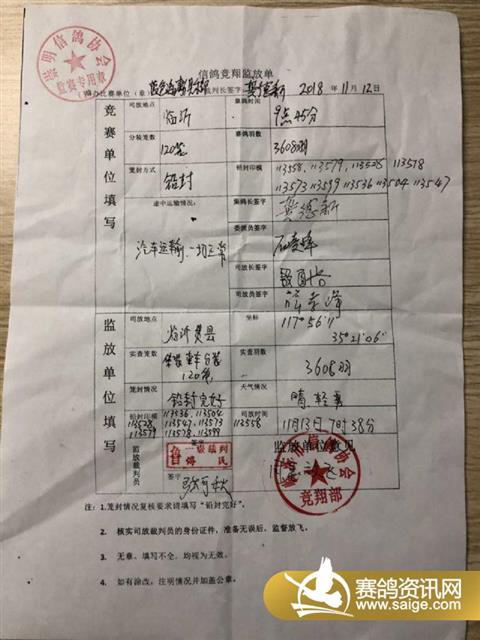 崇明信鸽协会
监赛专用章
信鸽竞翔监放单
2018 年 11 月 12 日
竞赛单位填写
司放地点
临沂
集鸽时间
9点45分
分装笼数
120笼
赛鸽羽数
3608羽
笼封方式
铅封
铅封印模
113558、113579、113528 113578
113573 113599 113536 113504 113547
途中运输情况:
汽车运输、一切正常
集鸽长签字
委派员签字
司放长签字
司放员签字
监放单位填写
司放地点
临沂费县
坐标
117°56′11″
35°21′06″
实查笼数
120笼
实查羽数
3608羽
笼封情况
铅封完好
天气情况
晴 轻雾
铅封印模
113536、113504
113528 113547、113573
113579 113578、113599
113558
司放时间
11月13日7时38分
监放裁判员
签字
监放单位意见
竞翔部
注:1.笼封情况复核要求请填写"铅封完好"。
2. 核实司放裁判员的身份证件,准备无误后,监督放飞。
3. 无章、填写不全、均视为无效。
4. 如有涂改,注明情况并加盖公章。
赛鸽资讯网
www.saige.com